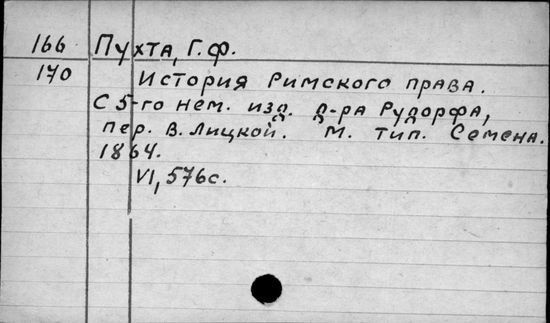 166 Пухта, Г.Ф.
170 История Римского права.
С 5-го нем. изд. д-ра Рудорфа,
пер. В. Лицкой. М. тип. Семена.
1864.
VI, 576с.